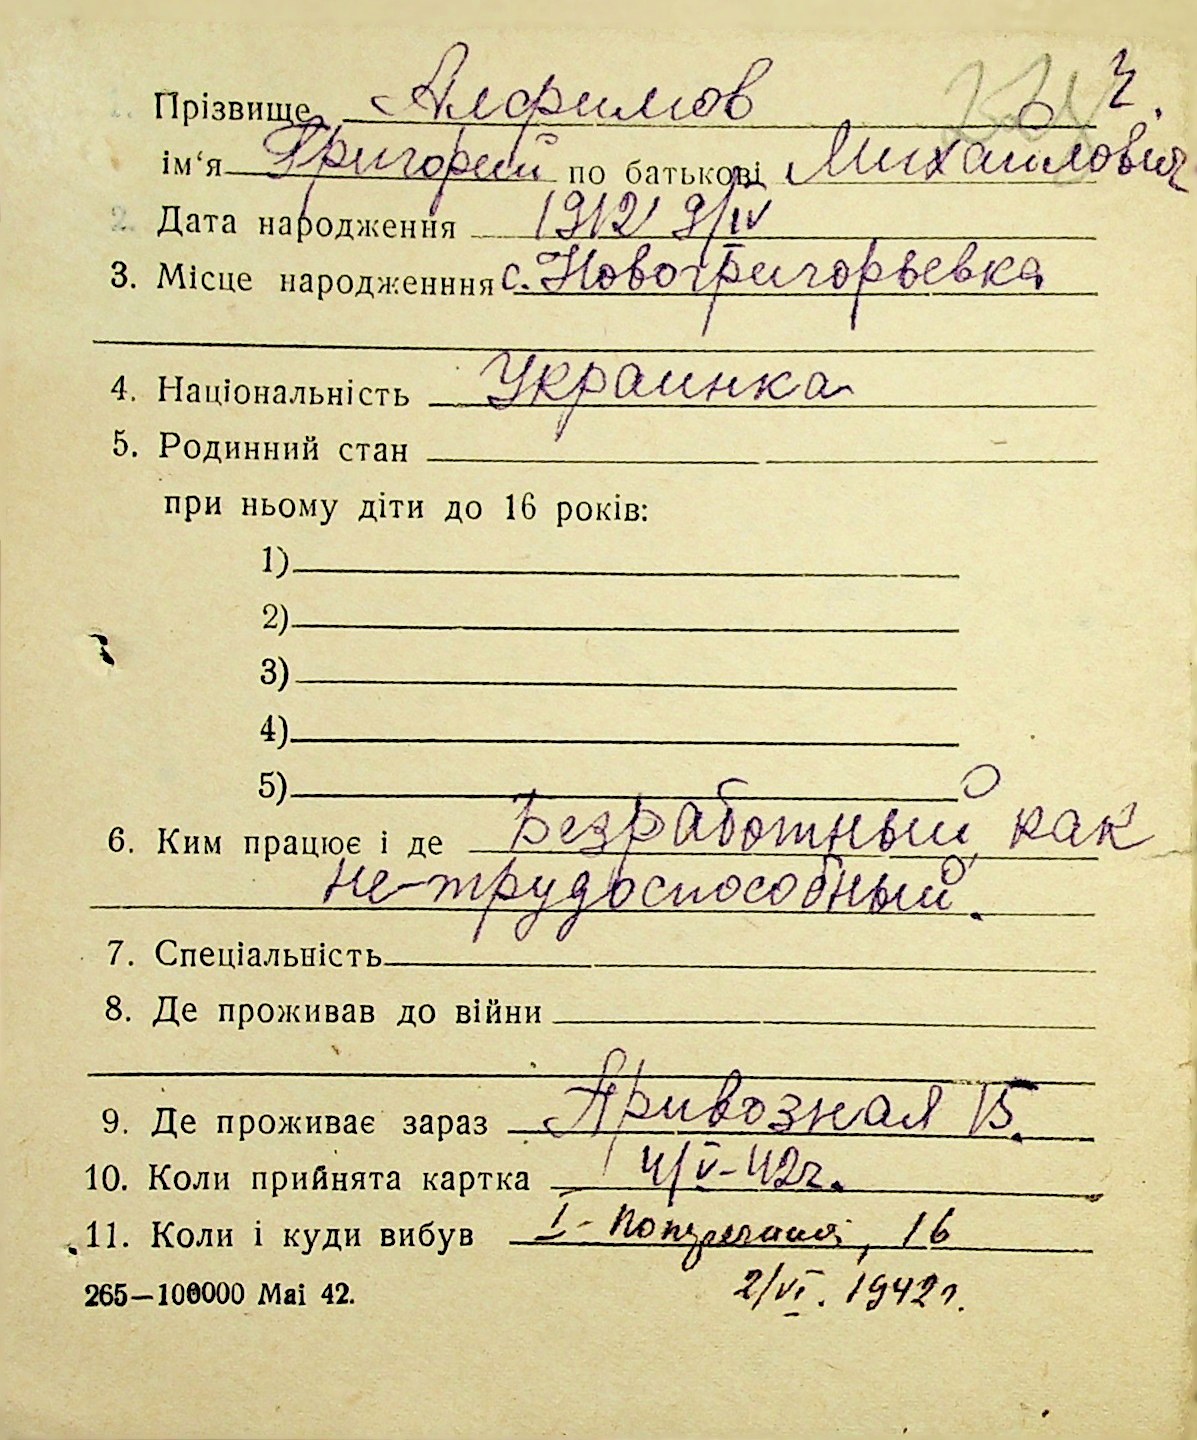 1. Прізвище Алфимов ч.
ім'я Григорий по батькові Михаилович
2. Дата народження 1912 9/IV
3. Місце народженння с. Новогригорьевка
4. Національність Украинка
5. Родинний стан
при ньому діти до 16 років:
1)
2)
3)
4)
5)
6. Ким працює і де Безработный, как
не-трудоспособный.
7. Спеціальність
8. Де проживав до війни
9. Де проживає зараз Привозная 15.
10. Коли прийнята картка 4/V-42г.
11. Коли і куди вибув I-Поперечная, 16
265—100000 Mai 42. 2/VI. 1942г.